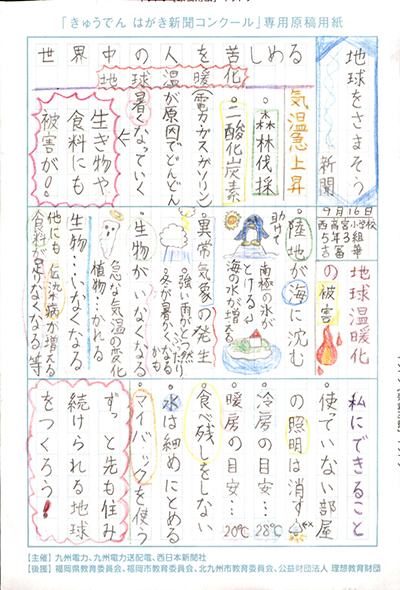 「きゅうでん はがき新聞コンクール」専用原稿用紙
地球をさまそう
新聞
9月16日
西高宮小学校
5年3組
世界中の人を苦しめる
地球温暖化
気温急上昇
・森林伐採
・二酸化炭素
(電力ガスガソリン)
が原因でどんどん
暑くなっていく
生き物や
食料にも
被害が!!
地球温暖化
の被害
・陸地が海に沈む
南極の氷が
とける→
海の水が増える
助けて
・異常気象の発生
・強い雨がとつ然
ふったり
・冬が暑くなるかも
・生物がいなくなる
急な気温の変化
植物…かれる
生物…いなくなる
他にも伝染病が増える
食料が足りなくなる等
私にできること
・使っていない部屋
の照明は消す
・冷房の目安…28℃
・暖房の目安…20℃
・食べ残しをしない
・水は細めにとめる
・マイバックを使う
ずっと先も住み
続けられる地球
をつくろう!
【主催】九州電力、九州電力送配電、西日本新聞社
【後援】福岡県教育委員会、福岡市教育委員会、北九州市教育委員会、公益財団法人 理想教育財団